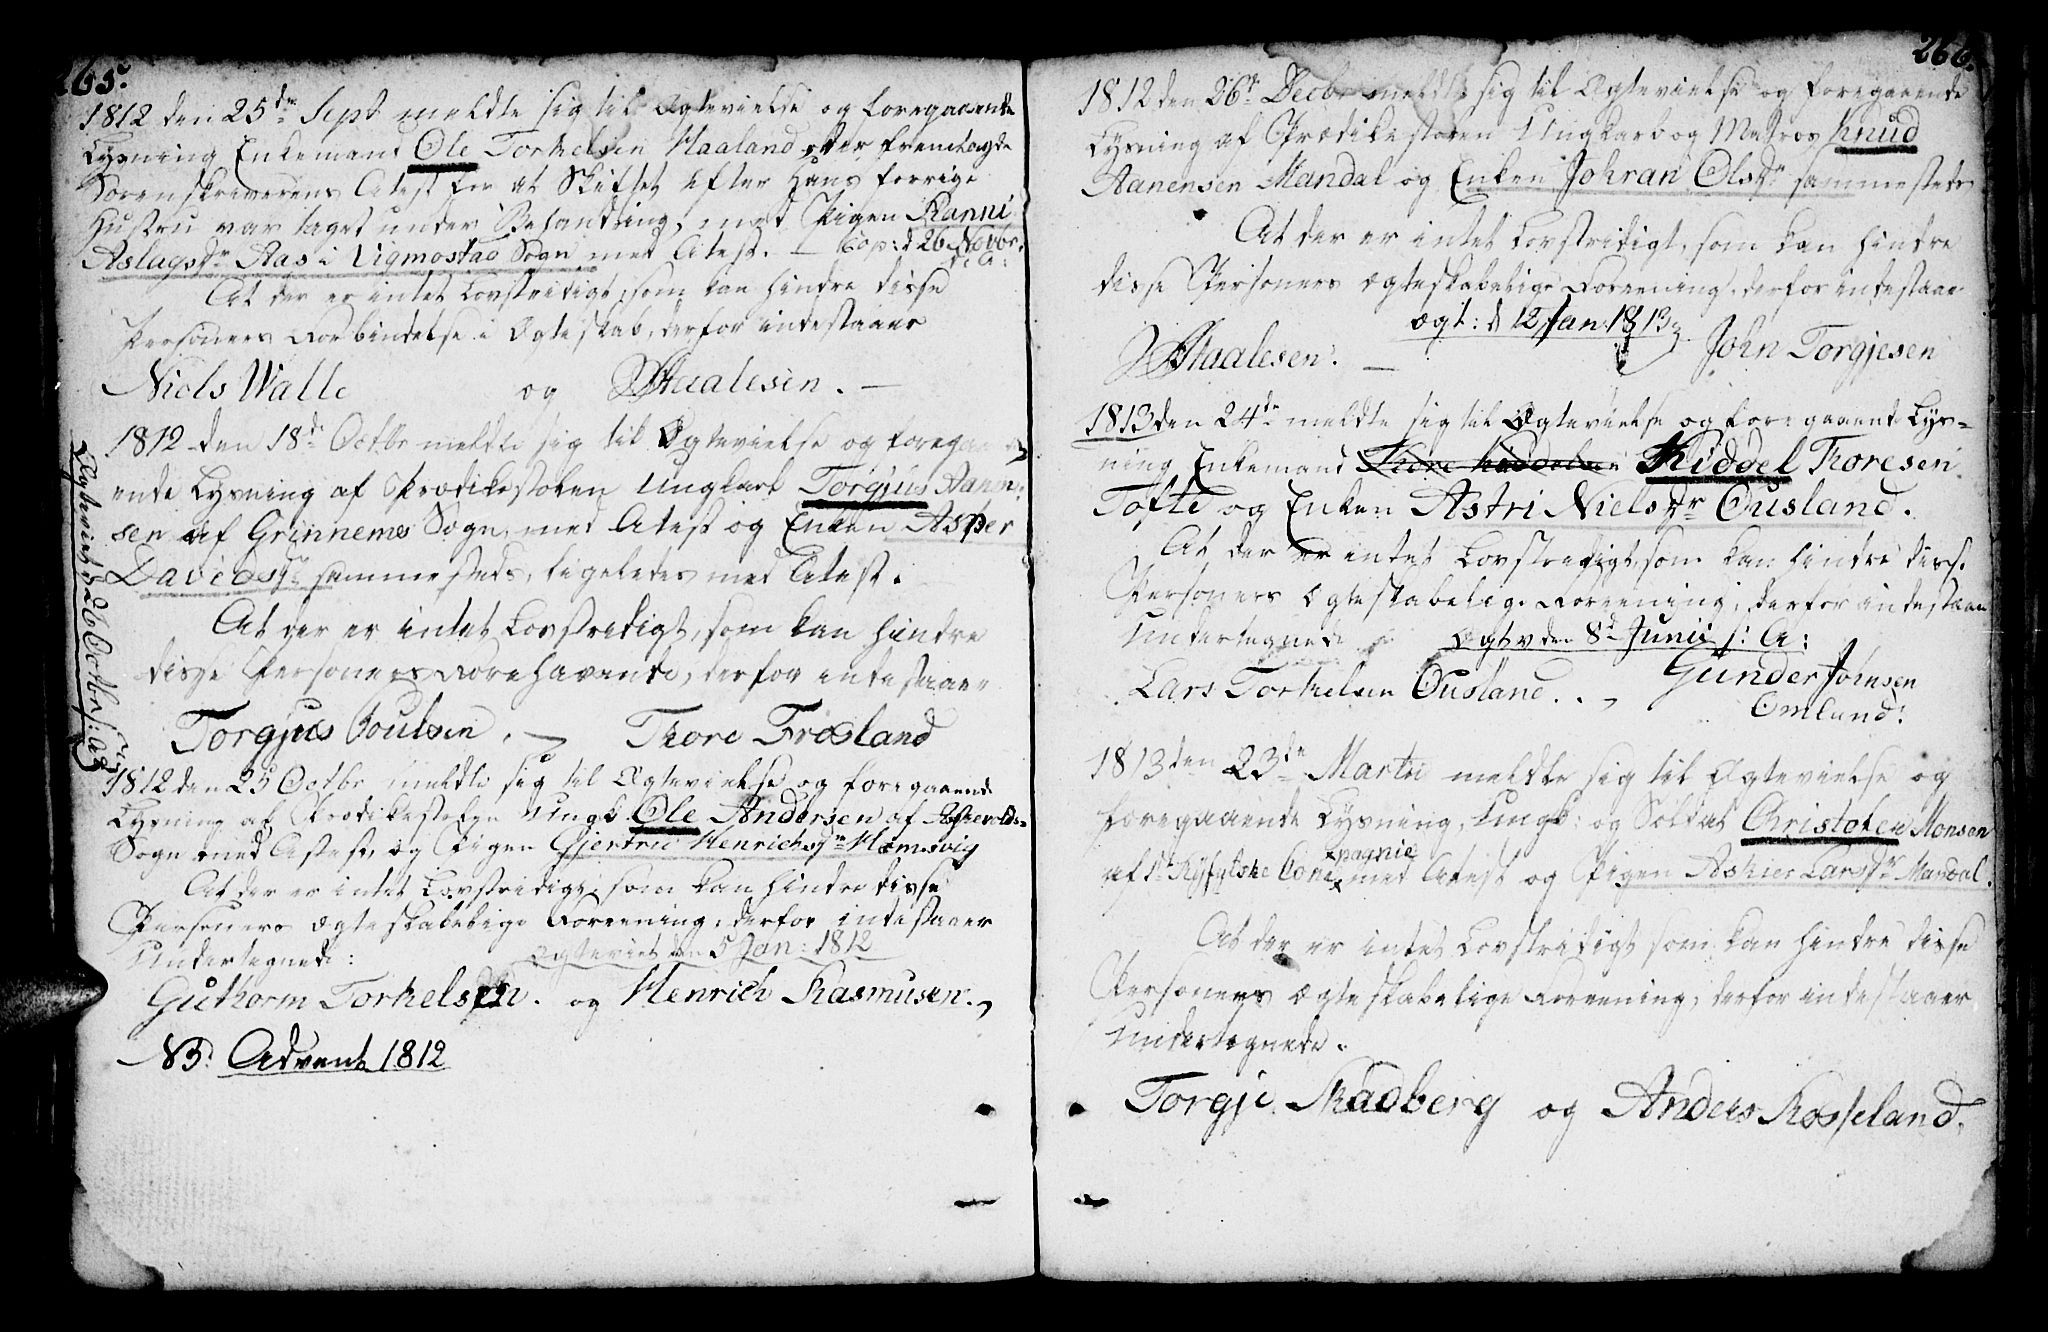 265.
1812 den 25de Sept meldte sig til Ægtevielse og foregaaende
Lysning Enkemand Ole Torkelsen Haaland efter fremlagde
Sorenskriverens Atest for at Skiftet efter Hans forrige
Hustru var taget under Behandling, med Pigen Ranni
Aslagsdr Aas i Vigmostad Sogn med Atest. — Cop: d 26 Novbr.
s: A:
At der er intet Lovstridigt, som kan hindre disse
Personers Forbindelse i Ægteskab, derfor indestaaer
Niels Walle og Staalesen. —
1812 den 18de Octbr meldte sig til Ægtevielse og foregaa
ende Lysning af Prædikestolen Ungkarl Torgjus Aanen
sen af Grinnems Sogn, med Atest og Enken Asper
Davidsdr sammesteds, ligeledes med Atest.
At der er intet Lovstridigt, som kan hindre
disse Personers Forehavende, derfor indestaaer
Torgjus Poulsen. — Thore Frøsland
Ægteviet d 26 Octbr s: A:
1812 den 25 Octbr meldte sig til Ægtevielse og foregaaende
Lysning af Prædikestolen Ungk Ole Andersen af
Sogn med Atest, og Pigen Gjertrud Henrichsdr Hæmsvig
At der er intet Lovstridigt, som kan hindre disse
Personers ægteskabelige Foreening, derfor indestaaer
Undertegnede: Ægteviet den 5 Jan: 1812
Guthorm Torkelsen. og Henrich Rasmusen.
NB. Advent 1812
266.
1812 den 26de Decbr meldte sig til Ægtevielse og foregaaende
Lysning af Prædikestolen Ungkarl og Matros Knud
Aanensen Mandal og Enken Johran Olsdr sammesteds
At der er intet Lovstridigt, som kan hindre
disse Personers ægteskabelige Foreening, derfor indestaaer
ægt: d 12 Jan 1813
Staalesen. — John Torgjesen
1813 den 24de meldte sig til Ægtevielse og foregaaende Lys-
ning Enkemand Kiddel Thoresen
Tofte og Enken Astri Nielsdr Ousland.
At der er intet Lovstridigt, som kan hindre disse
Personers Ægteskabelige Foreening, derfor indestaaer
Undertegnede Ægtv den 8de Junii s: A:
Lars Torkelsen Ousland. Gunder Johnsen
Omland.
1813 den 23de Martii meldte sig til Ægtevielse og
foregaaende Lysning, Ungk: og Soldat Christofer Monsen
pagnie
af Ryfylske Com med Atest og Pigen Askier Larsdr Mandal.
At der er intet Lovstridigt som kan hindre disse
Personers ægteskabelige Foreening, derfor indestaaer
Undertegnede.
Torgje Skadberg og Anders Rosseland.